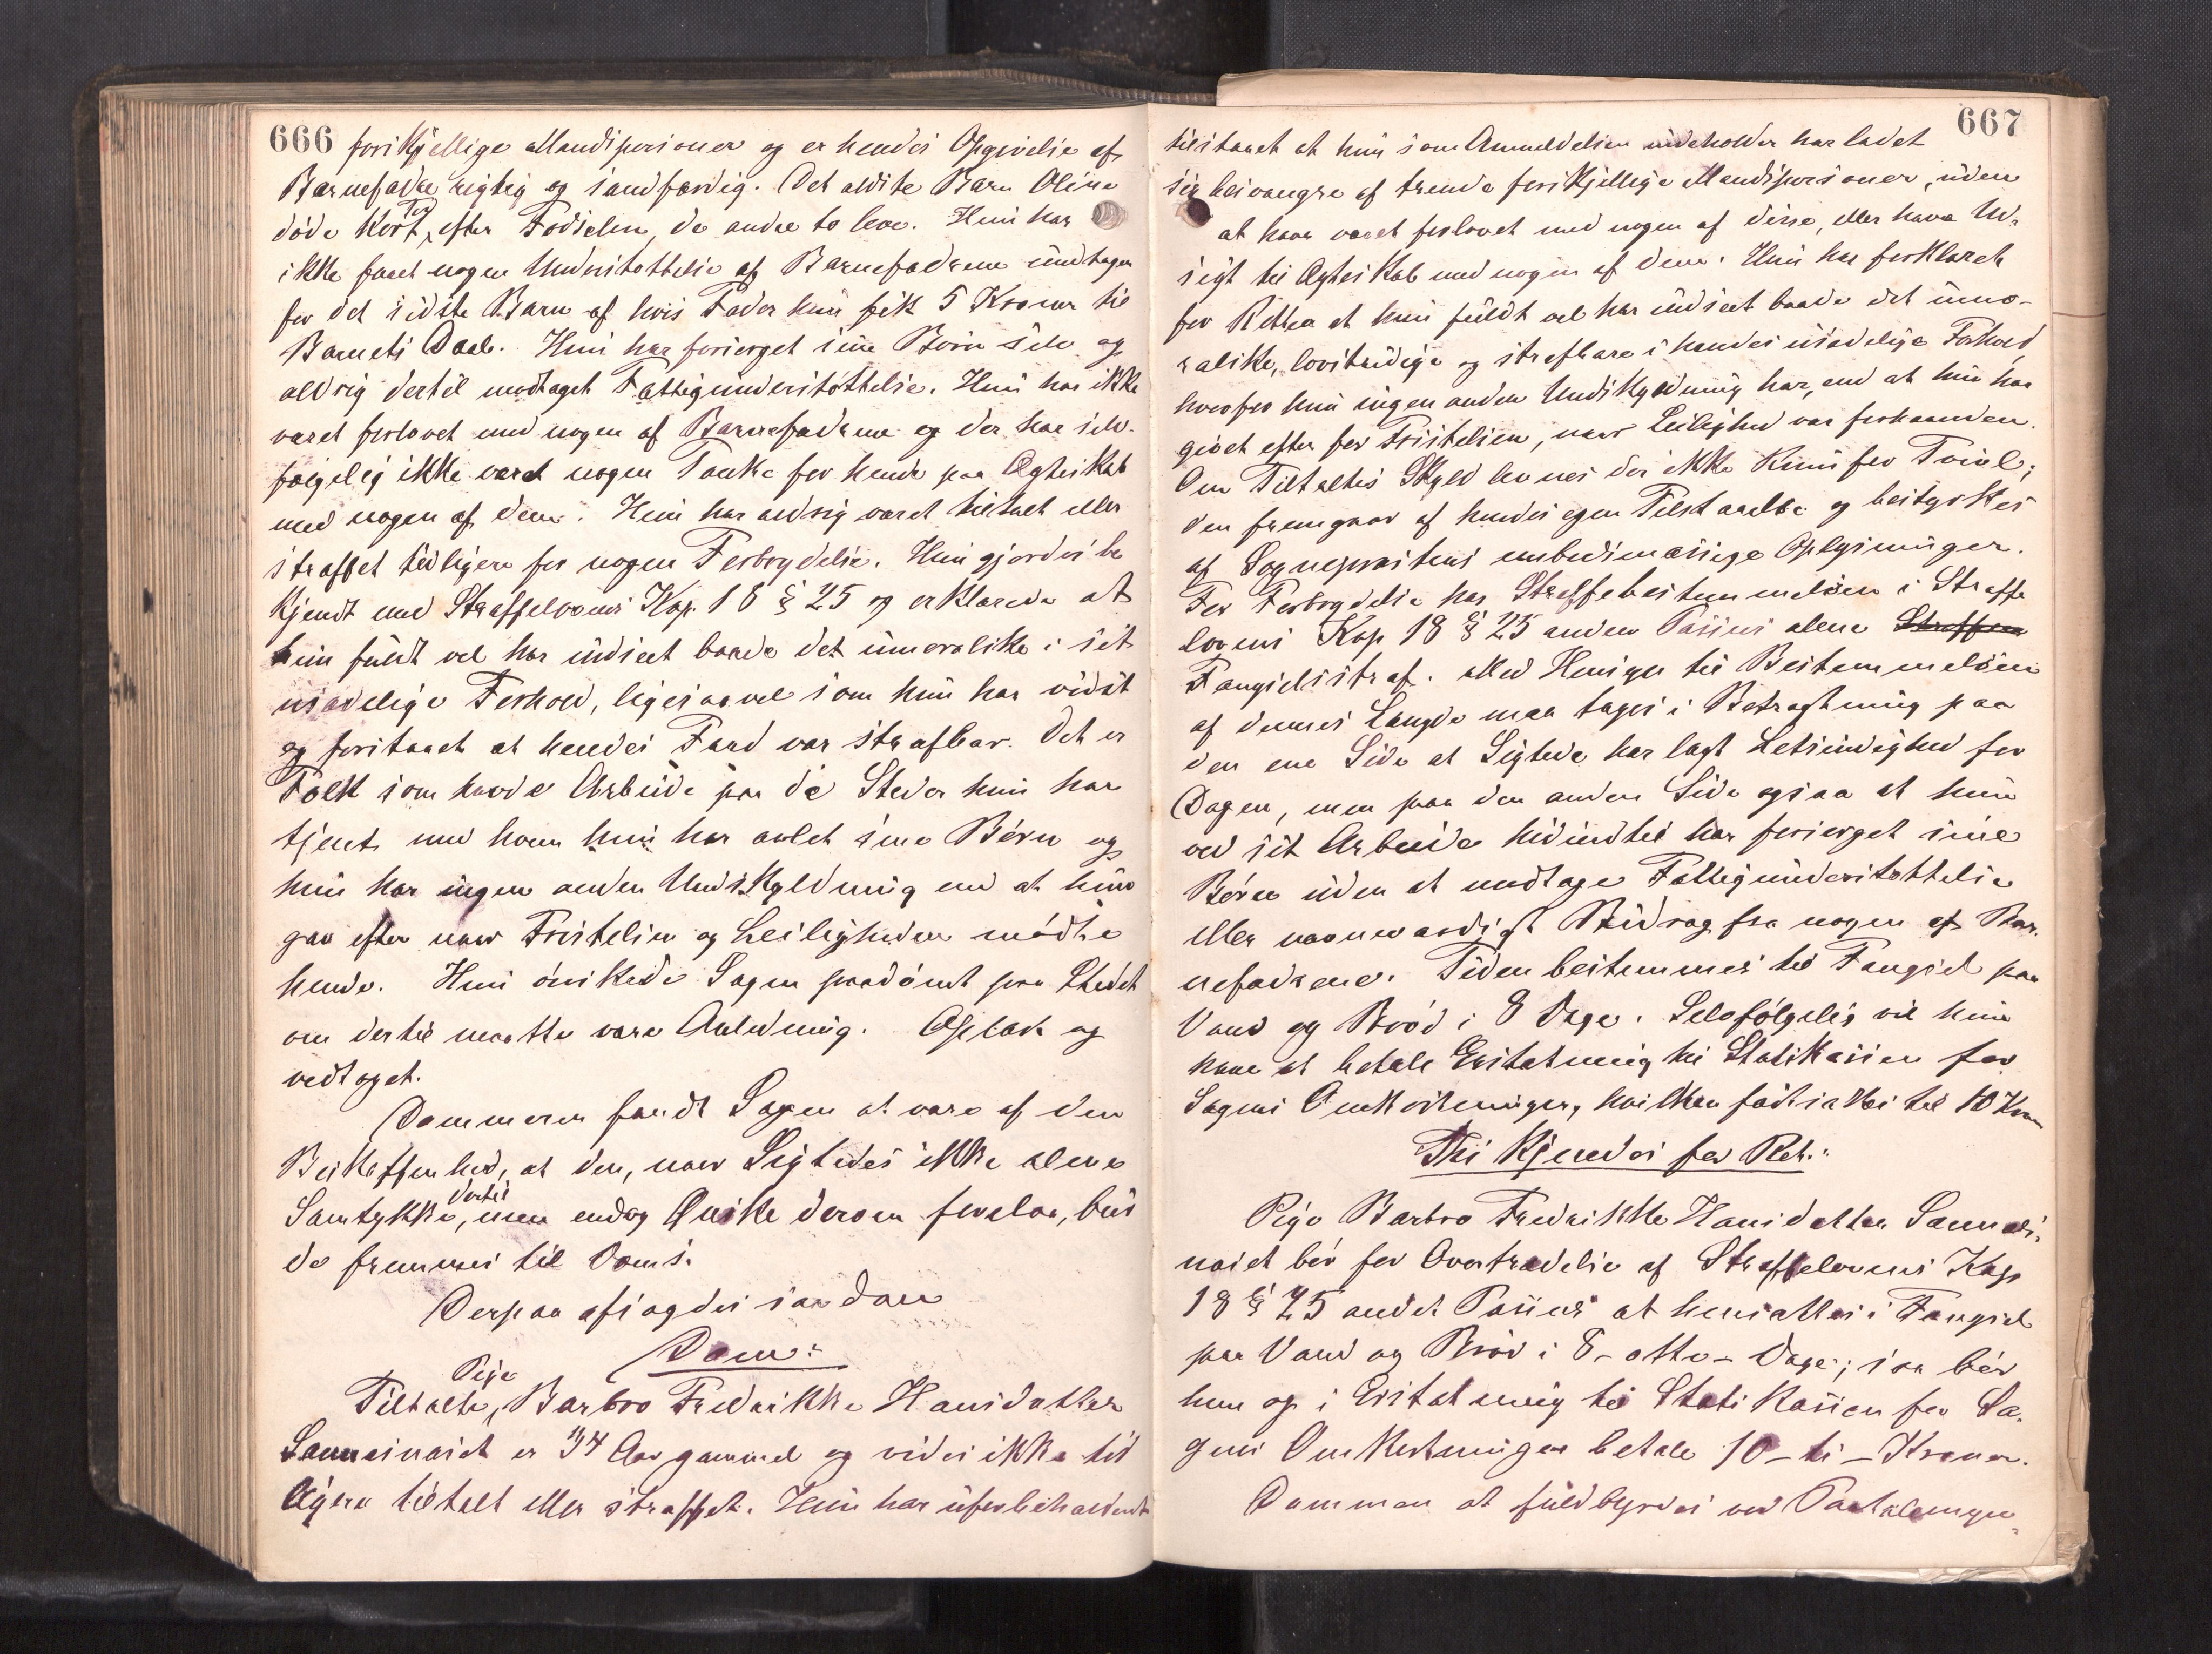 666 forskjellige Mandspersoner og er hendes Opgivelse af
Barnefædre rigtig og sandfærdig. Det ældste Barn Oline
døde kort Tid efter Fødselen, de andre to leve. Hun har
ikke faaet nogen Understøttelse af Barnefædrene undtagen
for det sidste Barn af hvis Fader hun fik 5 Kroner til
Barnets Daab. Hun har forsørget sine Børn selv og
aldrig dertil modtaget Fattigunderstøttelse. Hun har ikke
været forlovet med nogen af Barnefædrene og der har selv-
følgelig ikke været nogen Tanke for hende paa Ægteskab
med nogen af dem. Hun har aldrig været tiltalt eller
straffet tidligere for nogen Forbrydelse. Hun gjordes be
kjendt med Straffelovens Kap. 18 § 25 og erklærede at
hun fuldt vel har indseet baade det umoralske i sit
usædelige Forhold, ligesaavel som hun har vidst
og forstaaet at hendes Færd var strafbar. Det er
Folk som havde Arbeide paa de Steder hun har
tjent med hvem hun har avlet sine Børn og
hun har ingen anden Undskyldning end at hun
gav efter naar Fristelsen og Leiligheden mødte
hende. Hun ønskede Sagen paadømt paa Stedet
om dertil maatte være Anledning. Oplæst og
vedtaget.
Dommeren fandt Sagen at være af den
Beskaffenhed, at den, naar Sigtedes ikke alene
Samtykke dertil, men endog Ønske derom forelaa, bør
de fremmes til Doms.
Derpaa afsagdes saadan
Dom:
Tiltalte, Pige Barbro Fredrikke Hansdatter
Samnesnaset er 34 Aar gammel og vides ikke tid
ligere tiltalt eller straffet. Hun har uforbeholdent
667
tilstaaet at hun som Anmeldelsen indeholder har ladet
sig besvangre af trende forskjellige Mandspersoner, uden
at have været forlovet med nogen af disse, eller have Ud-
sigt til Ægteskab med nogen af dem. Hun har forklaret
for Retten at hun fuldt vel har indseet baade det umo-
ralske, lovstridige og strafbare i hendes usædelige Forhold,
hvorfor hun ingen anden Undskyldning har, end at hun har
givet efter for Fristelsen, naar Leilighed var forhaanden.
Om Tiltaltes Skyld levnes der ikke Rum for Tvivl;
den fremgaar af hendes egen Tilstaaelse og bestyrkes
af Sognepræstens embedsmæssige Oplysninger.
For Forbrydelse har Straffebestemmelsen i Straffe
lovens Kap 18 § 25 anden Passus alene Straffen
Fængselsstraf. Med Hensyn til Bestemmelsen
af dennes Længde maa tages i Betragtning paa
den ene Side at Sigtede har lagt Letsindighed for
Dagen, men paa den anden Side ogsaa at hun
ved sit Arbeide hidindtil har forsørget sine
Børn uden at modtage Fattigunderstøttelse
eller nævneværdigt Bidrag fra nogen af Bar-
nefædrene. Tiden bestemmes til Fængsel paa
Vand og Brød i 8 Dage. Selvfølgelig vil hun
have at betale Erstatning til Statskassen for
Sagens Omkostninger, hvilken fastsættes til 10 Kroner
Thi kjendes for Ret:
Pige Barbro Fredrikke Hansdatter Samnes-
naset bør for Overtrædelse af Straffelovens Kap
18 § 25 andet Passus at hensættes i Fængsel
paa Vand og Brød i 8 - otte - Dage; saa bør
hun og i Erstatning til Statskassen for Sa-
gens Omkostninger betale 10 - ti - Kroner.
Dommen at fuldbyrdes ved Paatalemyn-